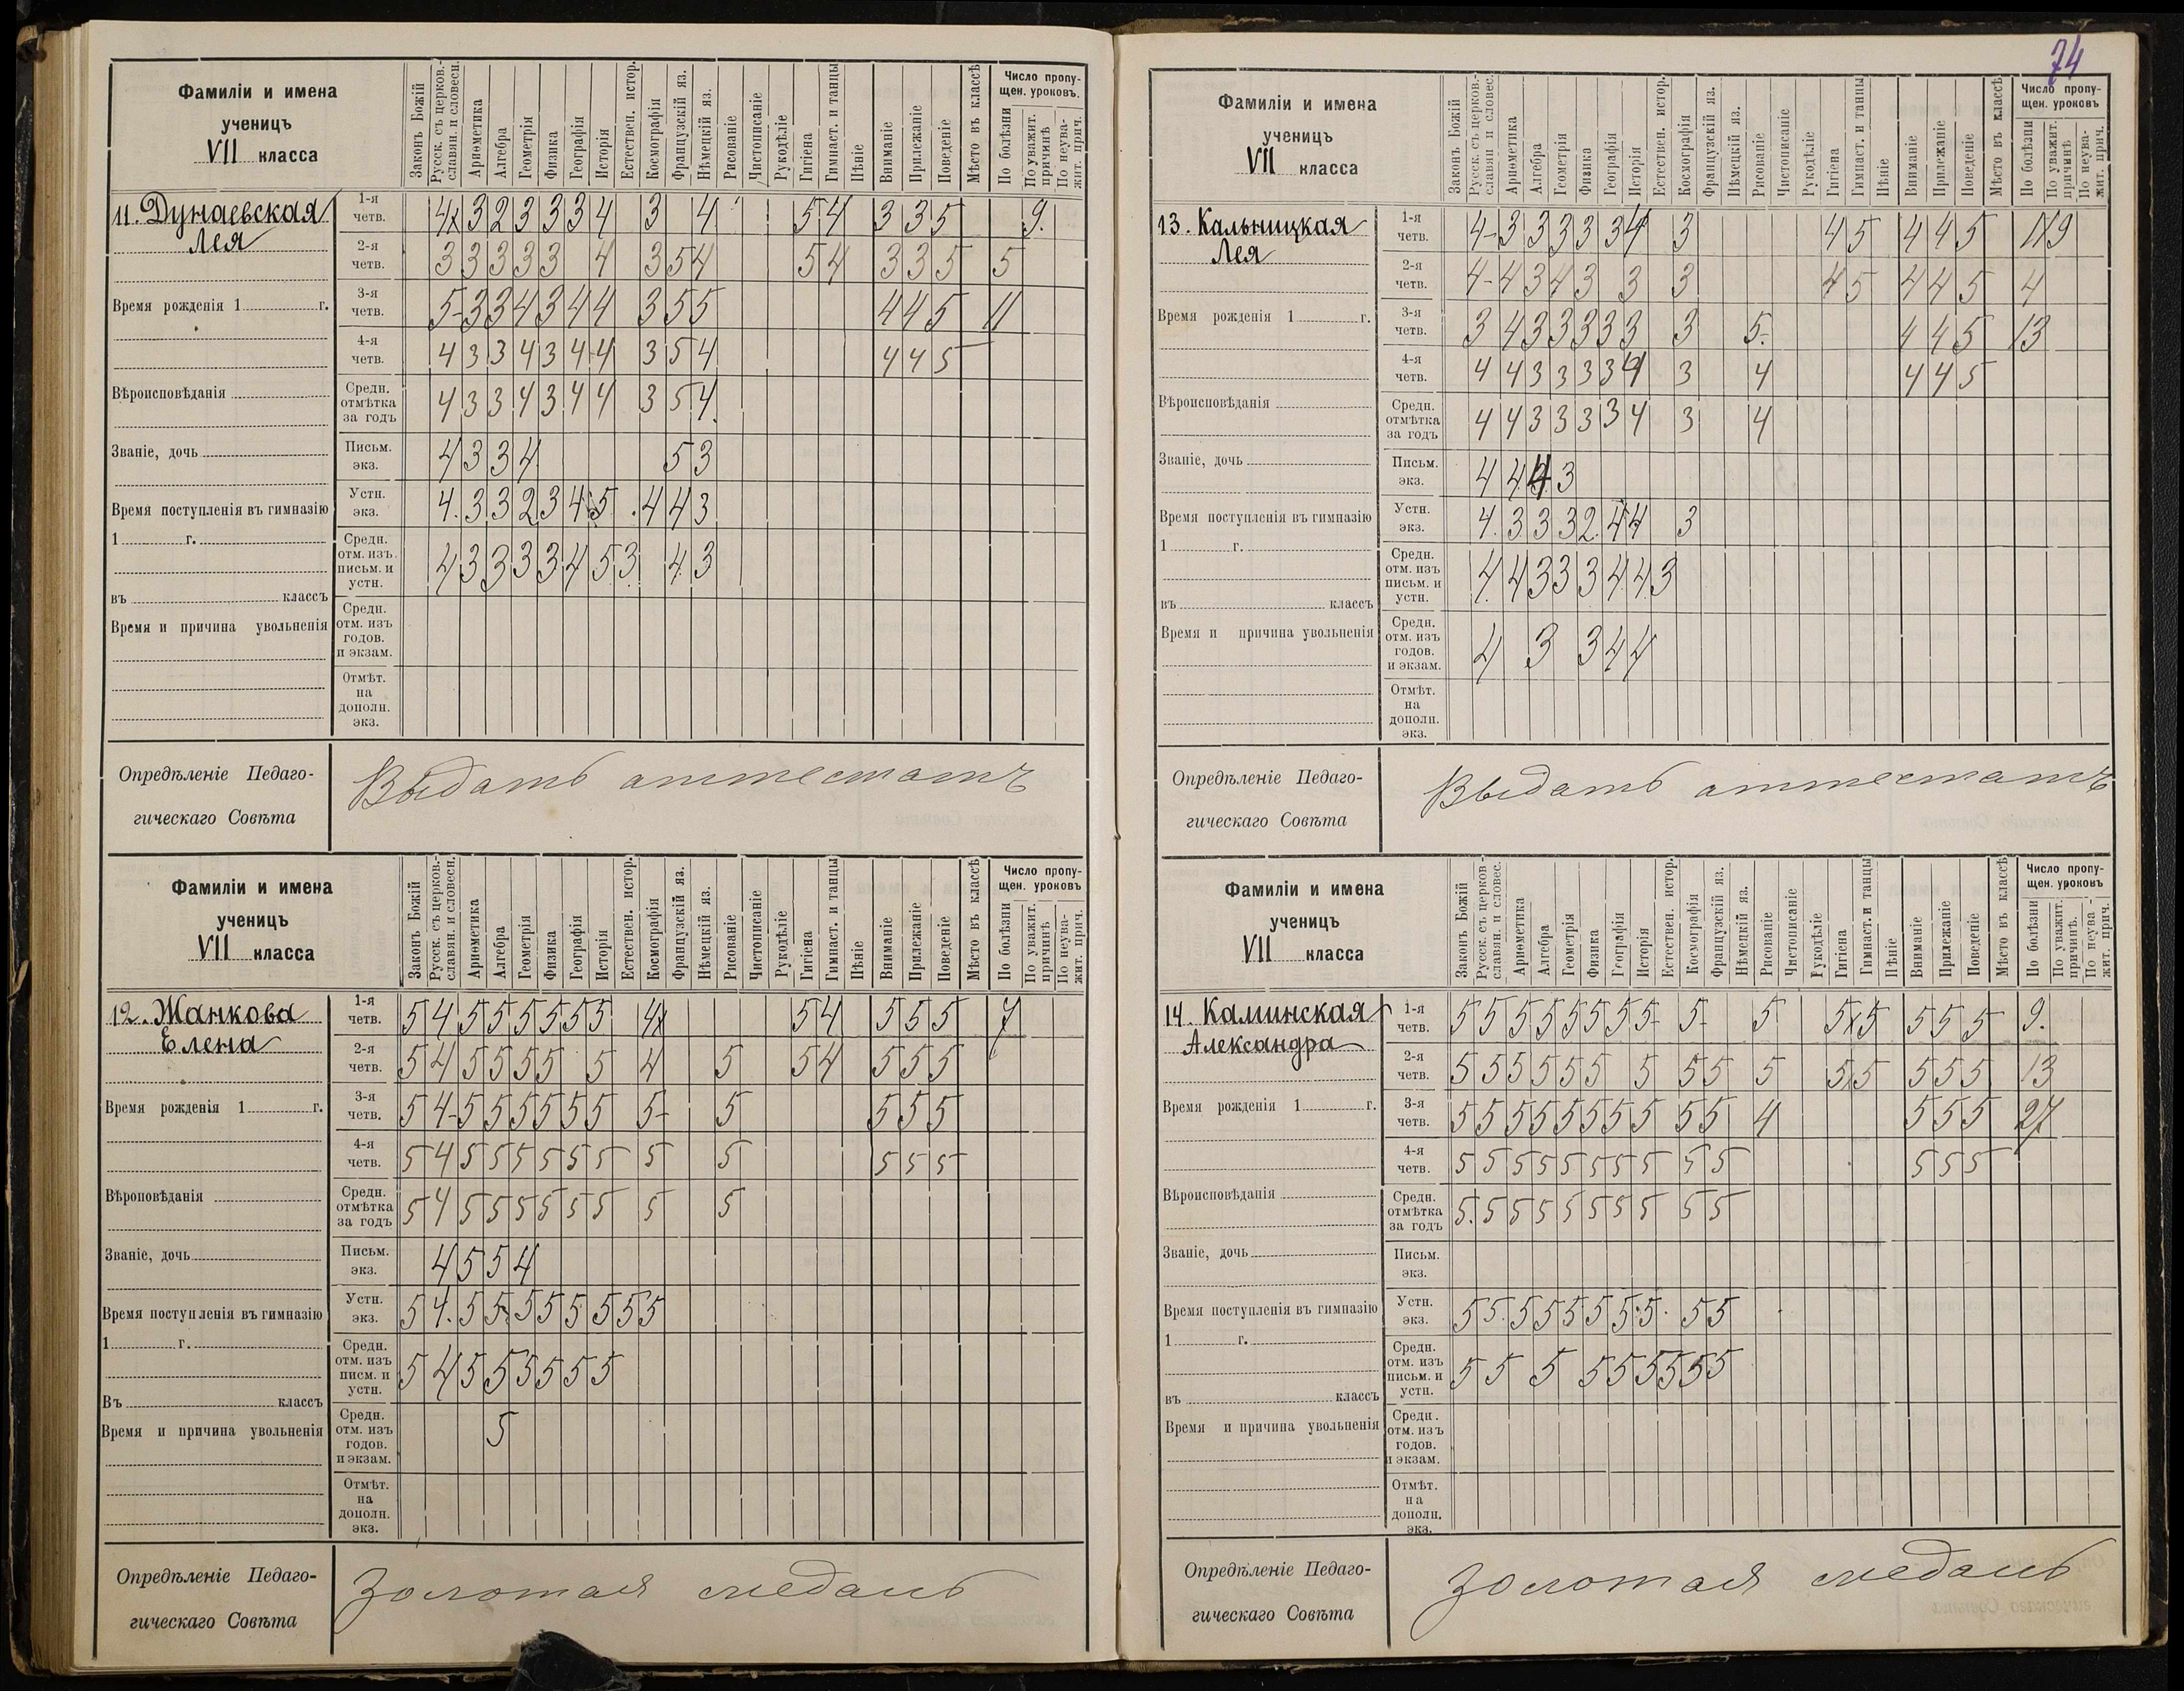 74
Фамиліи и имена
ученицъ
VII класса
Законъ Божій
Русск. съ церков.-
славян. и словесн.
Ариѳметика
Алгебра
Геометрія
Физика
Географія
Исторія
Естествен. истор.
Космографія
Французскій яз.
Нѣмецкій яз.
Рисованіе
Чистописаніе
Рукодѣліе
Гигіена
Гимнаст. и танцы
Пѣніе
Вниманіе
Прилежаніе
Поведеніе
Мѣсто въ классѣ
Число пропу-
щен. уроковъ.
По болѣзни
По уважит.
причинѣ
По неува-
жит. прич.
11. Дунаевская
Лея
Время рожденія 1 г.
Вѣроисповѣданія
Званіе, дочь
Время поступленія въ гимназію
1 г.
въ классъ
Время и причина увольненія
1-я четв. 4 3 2 3 3 3 4 3 4 5 4 3 3 5 9.
2-я четв. 3 3 3 3 3 4 3 5 4 5 4 3 3 5 5
3-я четв. 5- 3 3 4 3 4 4 3 5 5 4 4 5 11
4-я четв. 4 3 3 4 3 4 4 3 5 4 4 4 5
Средн. отмѣтка за годъ 4 3 3 4 3 4 4 3 5 4.
Письм. экз. 4 3 3 4 5 3
Устн. экз. 4. 3 3 2 3 4 5 . 4 4 3
Средн. отм. изъ. письм. и устн. 4 3 3 3 3 4 5 3 4 3
Средн. отм. изъ годов. и экзам.
Отмѣт. на дополн. экз.
Опредѣленіе Педаго-
гическаго Совѣта
Выдать аттестатъ
Фамиліи и имена
ученицъ
VII класса
Законъ Божій
Русск. съ церков.-
славян. и словесн.
Ариѳметика
Алгебра
Геометрія
Физика
Географія
Исторія
Естествен. истор.
Космографія
Французскій яз.
Нѣмецкій яз.
Рисованіе
Чистописаніе
Рукодѣліе
Гигіена
Гимнаст. и танцы
Пѣніе
Вниманіе
Прилежаніе
Поведеніе
Мѣсто въ классѣ
Число пропу-
щен. уроковъ
По болѣзни
По уважит.
причинѣ
По неува-
жит. прич.
12. Жанкова
Елена
Время рожденія 1 г.
Вѣроповѣданія
Званіе, дочь
Время поступленія въ гимназію
1 г.
Въ классъ
Время и причина увольненія
1-я четв. 5 4 5 5 5 5 5 5 4 5 4 5 5 5 7
2-я четв. 5 4 5 5 5 5 5 4 5 5 4 5 5 5
3-я четв. 5 4- 5 5 5 5 5 5 5- 5 5 5 5
4-я четв. 5 4 5 5 5 5 5 5 5 5 5 5 5
Средн. отмѣтка за годъ 5 4 5 5 5 5 5 5 5 5
Письм. экз. 4 5 5 4
Устн. экз. 5 4. 5 5 5 5 5 5 5 5
Средн. отм. изъ писм. и устн. 5 4 5 5 5 5 5 5
Средн. отм. изъ годов. и экзам. 5
Отмѣт. на дополн. экз.
Опредѣленіе Педаго-
гическаго Совѣта
Золотая медаль
Фамиліи и имена
ученицъ
VII класса
Законъ Божій
Русск. съ церков.-
славян и словес.
Ариѳметика
Алгебра
Геометрія
Физика
Географія
Исторія
Естествен. истор.
Космографія
Французскій яз.
Нѣмецкій яз.
Рисованіе
Чистописаніе
Рукодѣліе
Гигіена
Гимнаст. и танцы
Пѣніе
Вниманіе
Прилежаніе
Поведеніе
Мѣсто въ классѣ
Число пропу-
щен. уроковъ
По болѣзни
По уважит.
причинѣ
По неува-
жит. прич.
13. Кальницкая
Лея
Время рожденія 1 г.
Вѣроисповѣданія
Званіе, дочь
Время поступленія въ гимназію
1 г.
въ классъ
Время и причина увольненія
1-я четв. 4- 3 3 3 3 3 4 3 4 5 4 4 5
2-я четв. 4- 4 3 4 3 3 3 4 5 4 4 5 4
3-я четв. 3 4 3 3 3 3 3 3 5- 4 4 5 13
4-я четв. 4 4 3 3 3 3 4 3 4 4 4 5
Средн. отмѣтка за годъ 4 4 3 3 3 3 4 3 4
Письм. экз. 4 4 4 3
Устн. экз. 4. 3 3 3 2. 4 4 3
Средн. отм. изъ письм. и устн. 4 4 3 3 3 4 4 3
Средн. отм. изъ годов. и экзам. 4 3 3 4 4
Отмѣт. на дополн. экз.
Опредѣленіе Педаго-
гическаго Совѣта
Выдать аттестатъ
Фамиліи и имена
ученицъ
VII класса
Законъ Божій
Русск. съ церков-
славян. и словес.
Ариѳметика
Алгебра
Геометрія
Физика
Географія
Исторія
Естествен. истор.
Космографія
Французскій яз.
Нѣмецкій яз.
Рисованіе
Чистописаніе
Рукодѣліе
Гигіена
Гимнаст. и танцы
Пѣніе
Вниманіе
Прилежаніе
Поведеніе
Мѣсто въ классѣ
Число пропу-
щен. уроковъ
По болѣзни
По уважит.
причинѣ.
По неува-
жит. прич.
14. Каминская
Александра
Время рожденія 1 г.
Вѣроисповѣданія
Званіе, дочь
Время поступленія въ гимназію
1 г.
въ классъ
Время и причина увольненія
1-я четв. 5 5 5 5 5 5 5 5- 5- 5 5 5 5 5 5 9.
2-я четв. 5 5 5 5 5 5 5 5 5 5 5 5 5 5 5 13
3-я четв. 5 5 5 5 5 5 5 5 5 5 4 5 5 5 27
4-я четв. 5 5 5 5 5 5 5 5 5 5 5 5 5
Средн. отмѣтка за годъ 5. 5 5 5 5 5 5 5 5 5
Письм. экз.
Устн. экз. 5 5. 5 5 5 5 5. 5. 5 5
Средн. отм. изъ письм. и устн. 5 5 5 5 5 5 5 5 5
Средн. отм. изъ годов. и экзам.
Отмѣт. на дополн. экз.
Опредѣленіе Педаго-
гическаго Совѣта
Золотая медаль